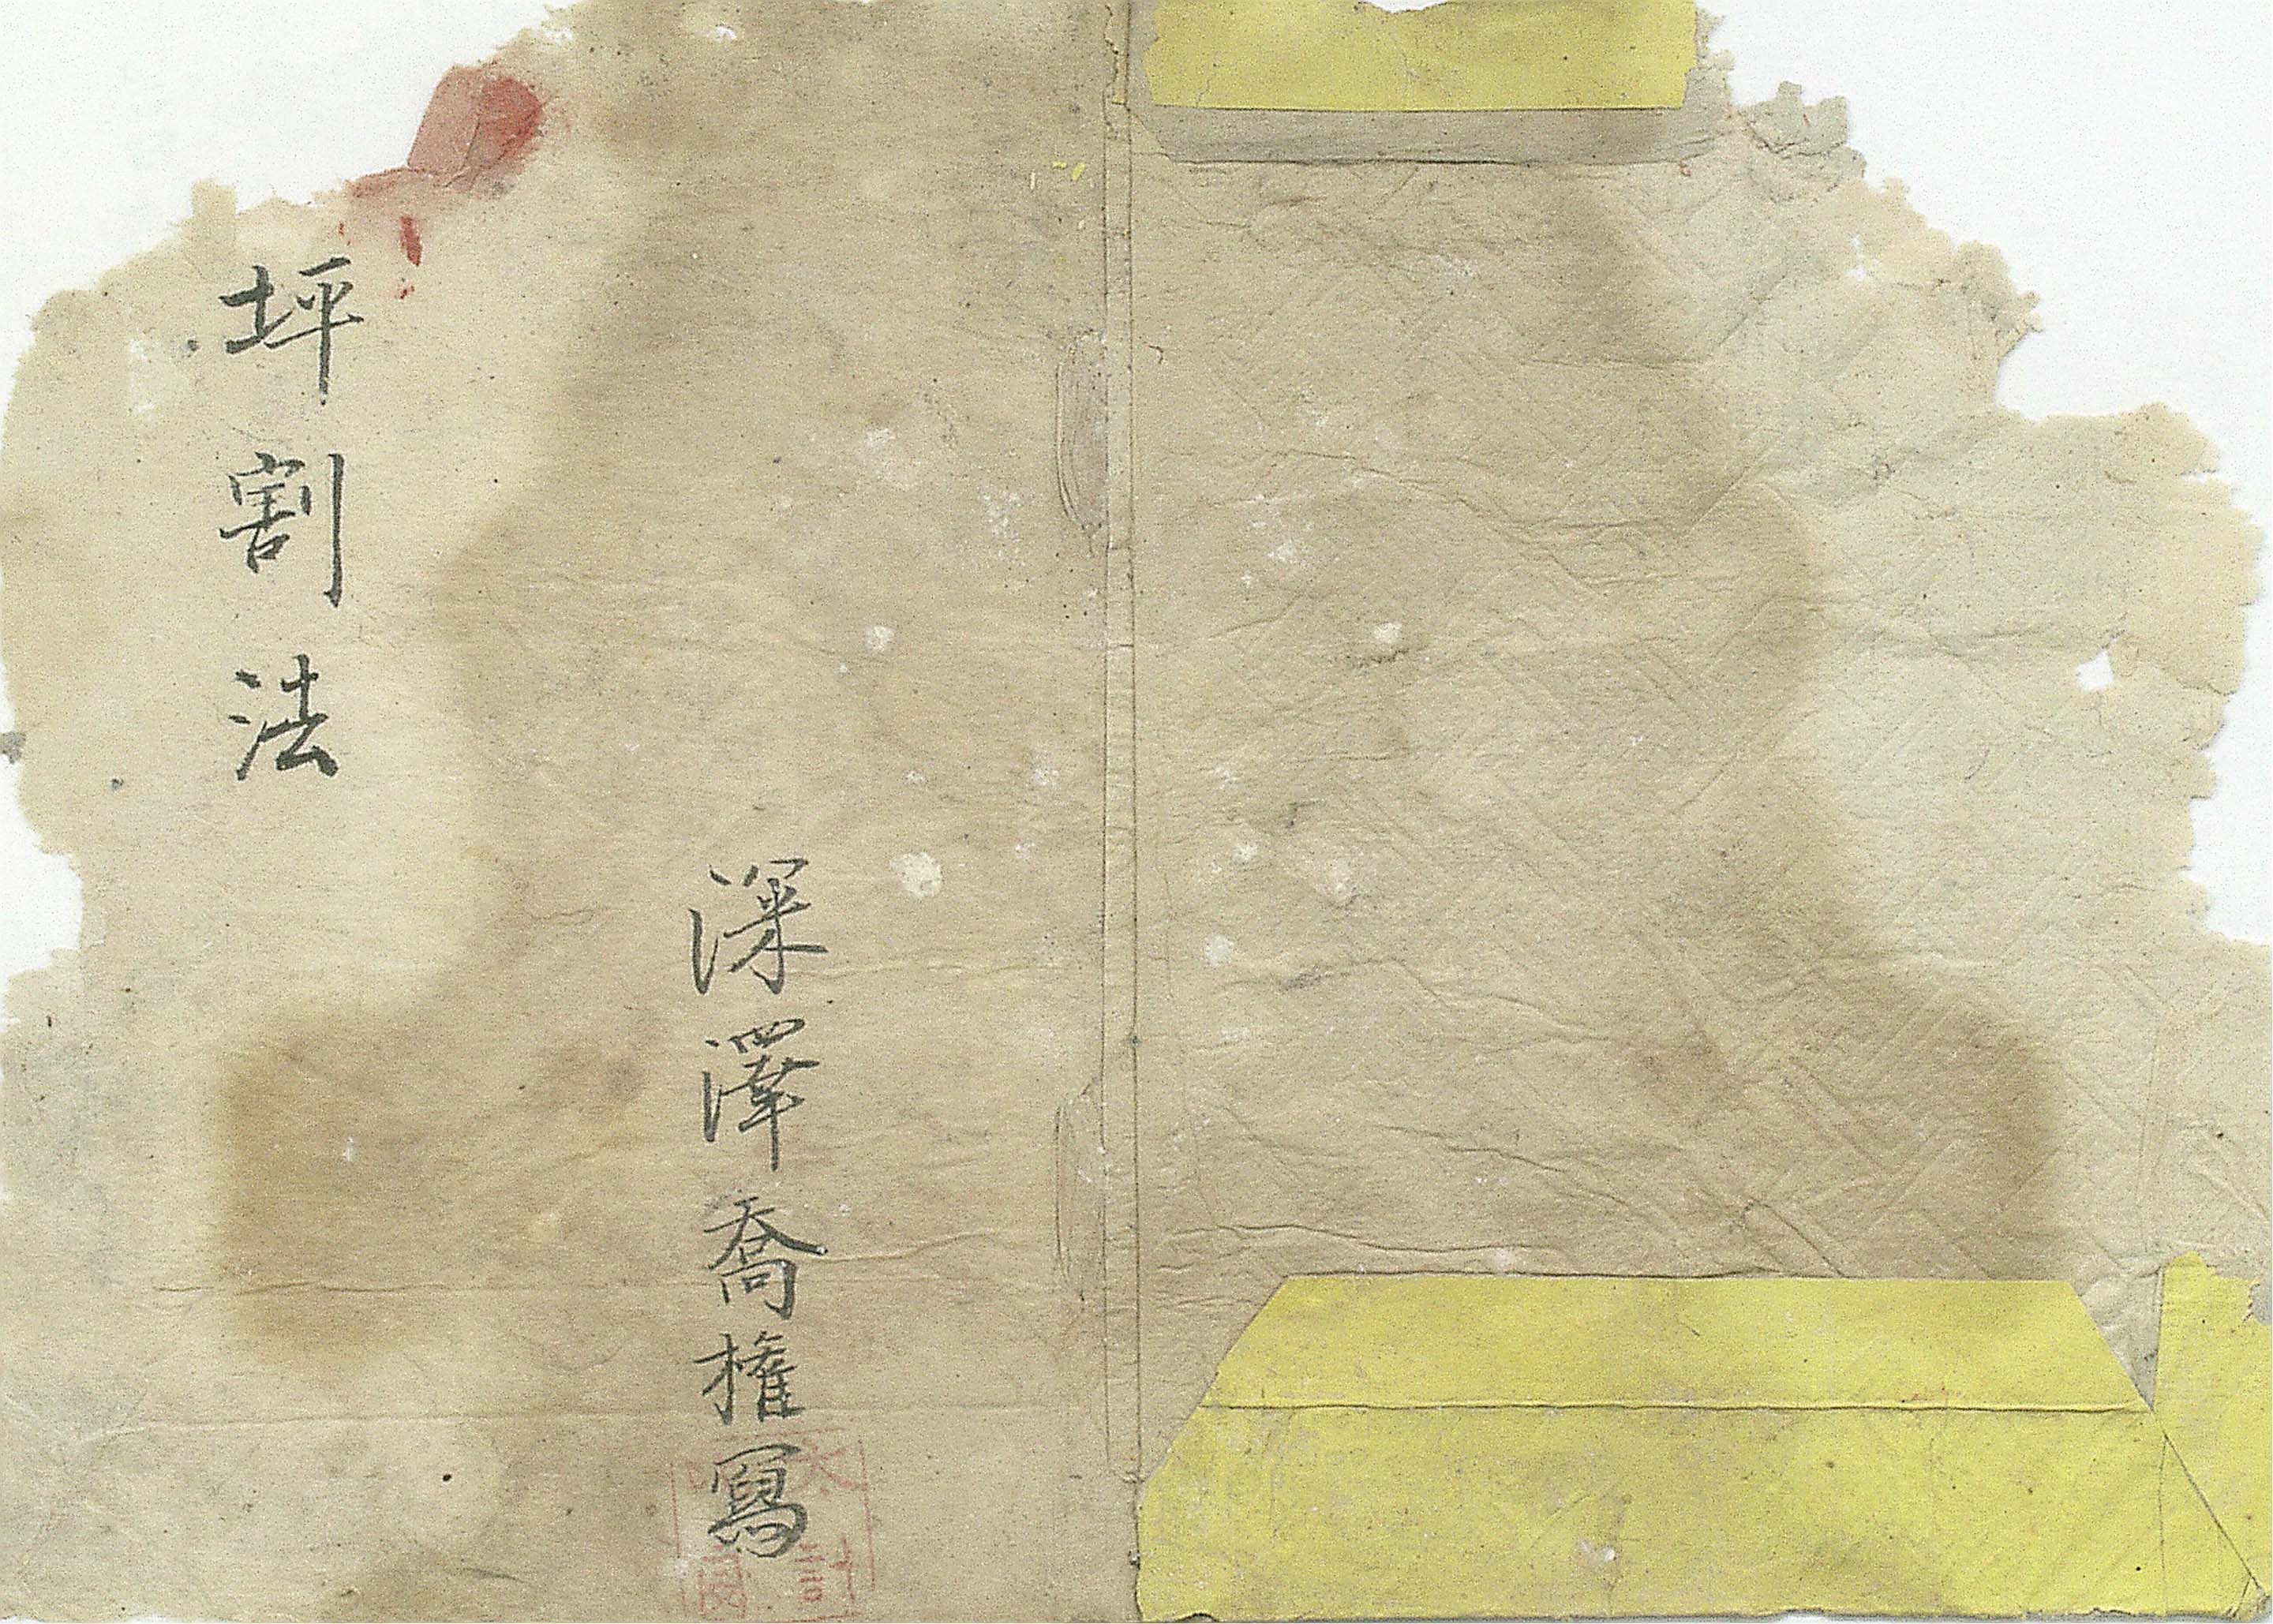 坪割法
深澤喬権寫